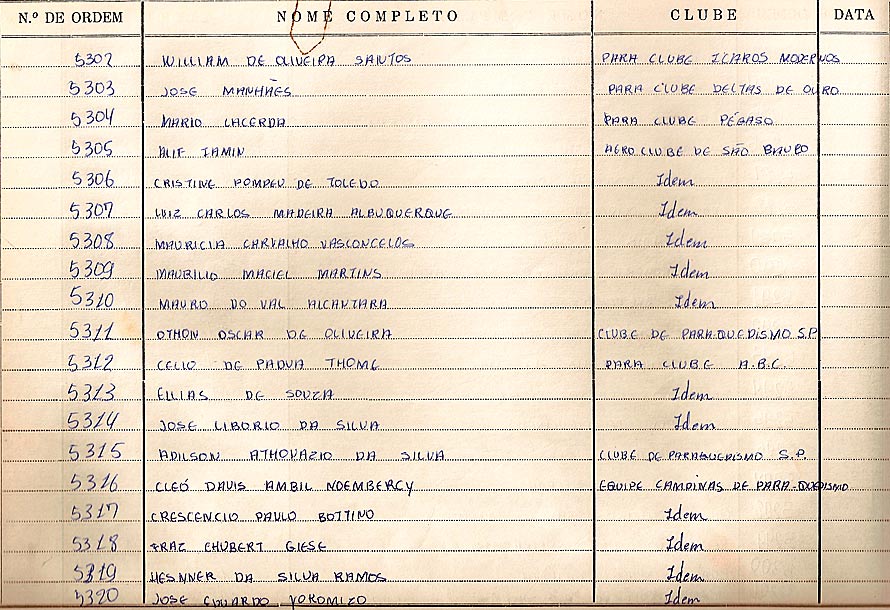 N.º DE ORDEM NOME COMPLETO CLUBE DATA
5302 WILLIAM DE OLIVEIRA SANTOS PARA CLUBE ICAROS MODERNOS
5303 JOSE MANHÃES PARA CLUBE DELTAS DE OURO
5304 MARIO LACERDA PARA CLUBE PÉGASO
5305 ALIF JAMIN AERO CLUBE DE SÃO
5306 CRISTINE POMPEU DE TOLEDO Idem
5307 LUIZ CARLOS MADEIRA ALBUQUERQUE Idem
5308 MAURICIA CARVALHO VASCONCELOS Idem
5309 MAURILIO MACIEL MARTINS Idem
5310 MAURO DO VAL ALCANTARA Idem
5311 OTHON OSCAR DE OLIVEIRA CLUBE DE PARA-QUEDISMO S.P
5312 CELIO DE PADUA THOME PARA CLUBE A.B.C.
5313 ELLIAS DE SOUZA Idem
5314 JOSE LIBORIO DA SILVA Idem
5315 ADILSON DA SILVA CLUBE DE PARAQUEDISMO S.P.
5316 CLEÓ DAVIS AMBIL NOEMBERCY EQUIPE CAMPINAS DE PARA-QUEDISMO
5317 CRESCENCIO PAULO BOTTINO Idem
5318 FRAZ CHUBERT GIESE Idem
5319 HESNNER DA SILVA RAMOS Idem
5320 JOSE EDUARDO YOROMIZO Idem